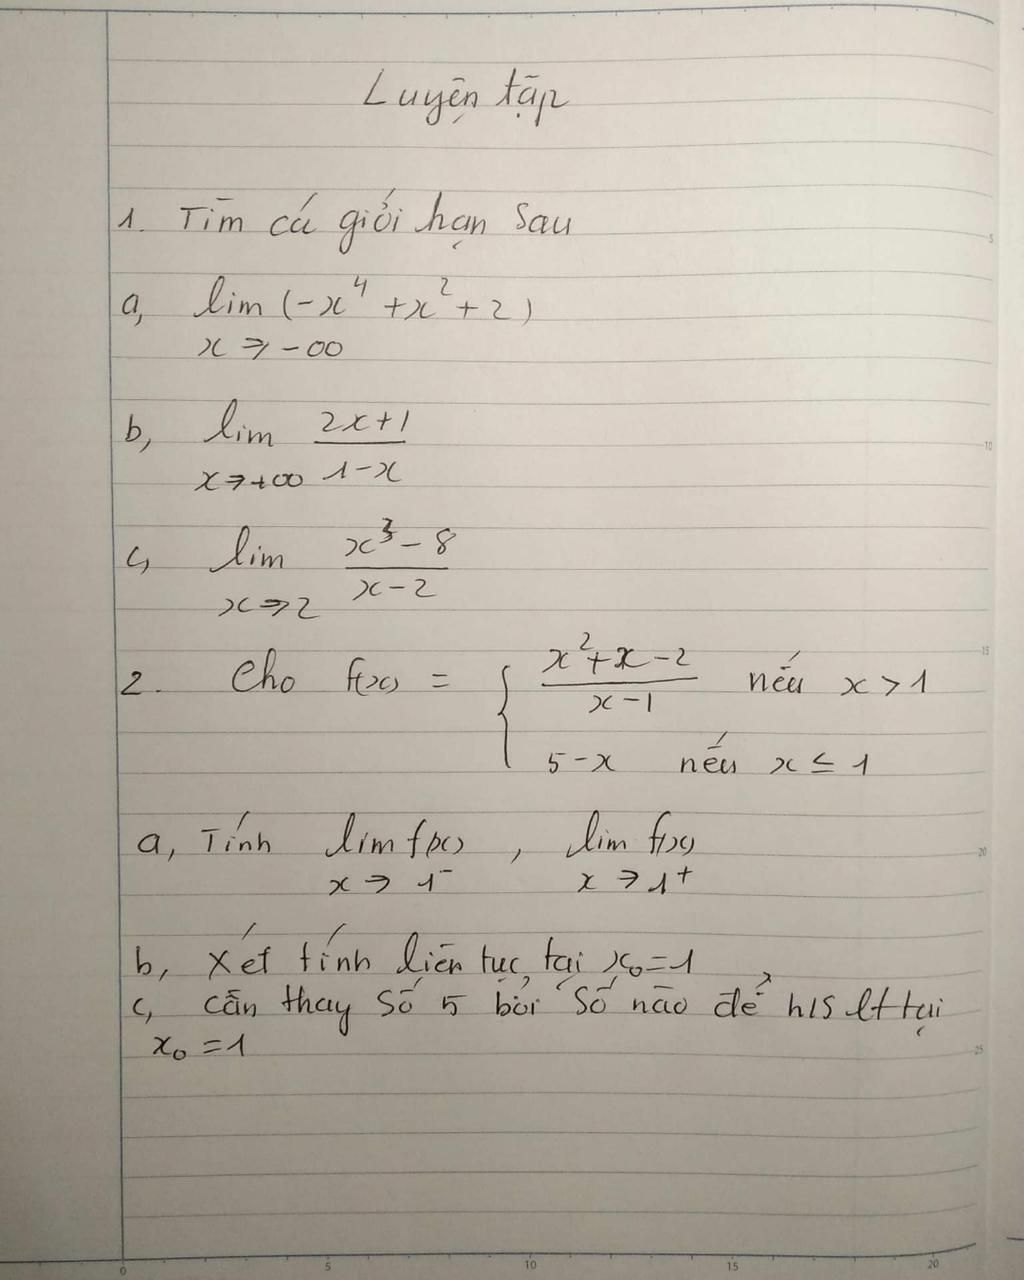 Luyện tập
1. Tìm cá giới hạn sau
a, lim (-x⁴ + x² + 2)
x → -∞
b, lim (2x+1)/(1-x)
x → +∞
c, lim (x³-8)/(x-2)
x → 2
2. Cho f(x) = { (x²+x-2)/(x-1) nếu x > 1
5-x nếu x ≤ 1
a, Tính lim f(x) , lim f(x)
x → 1⁻ x → 1⁺
b, Xét tính liên tục tại x₀=1
c, cần thay số 5 bởi số nào để h/s lt tại
x₀ = 1
5
10
15
20
25
0 5 10 15 20